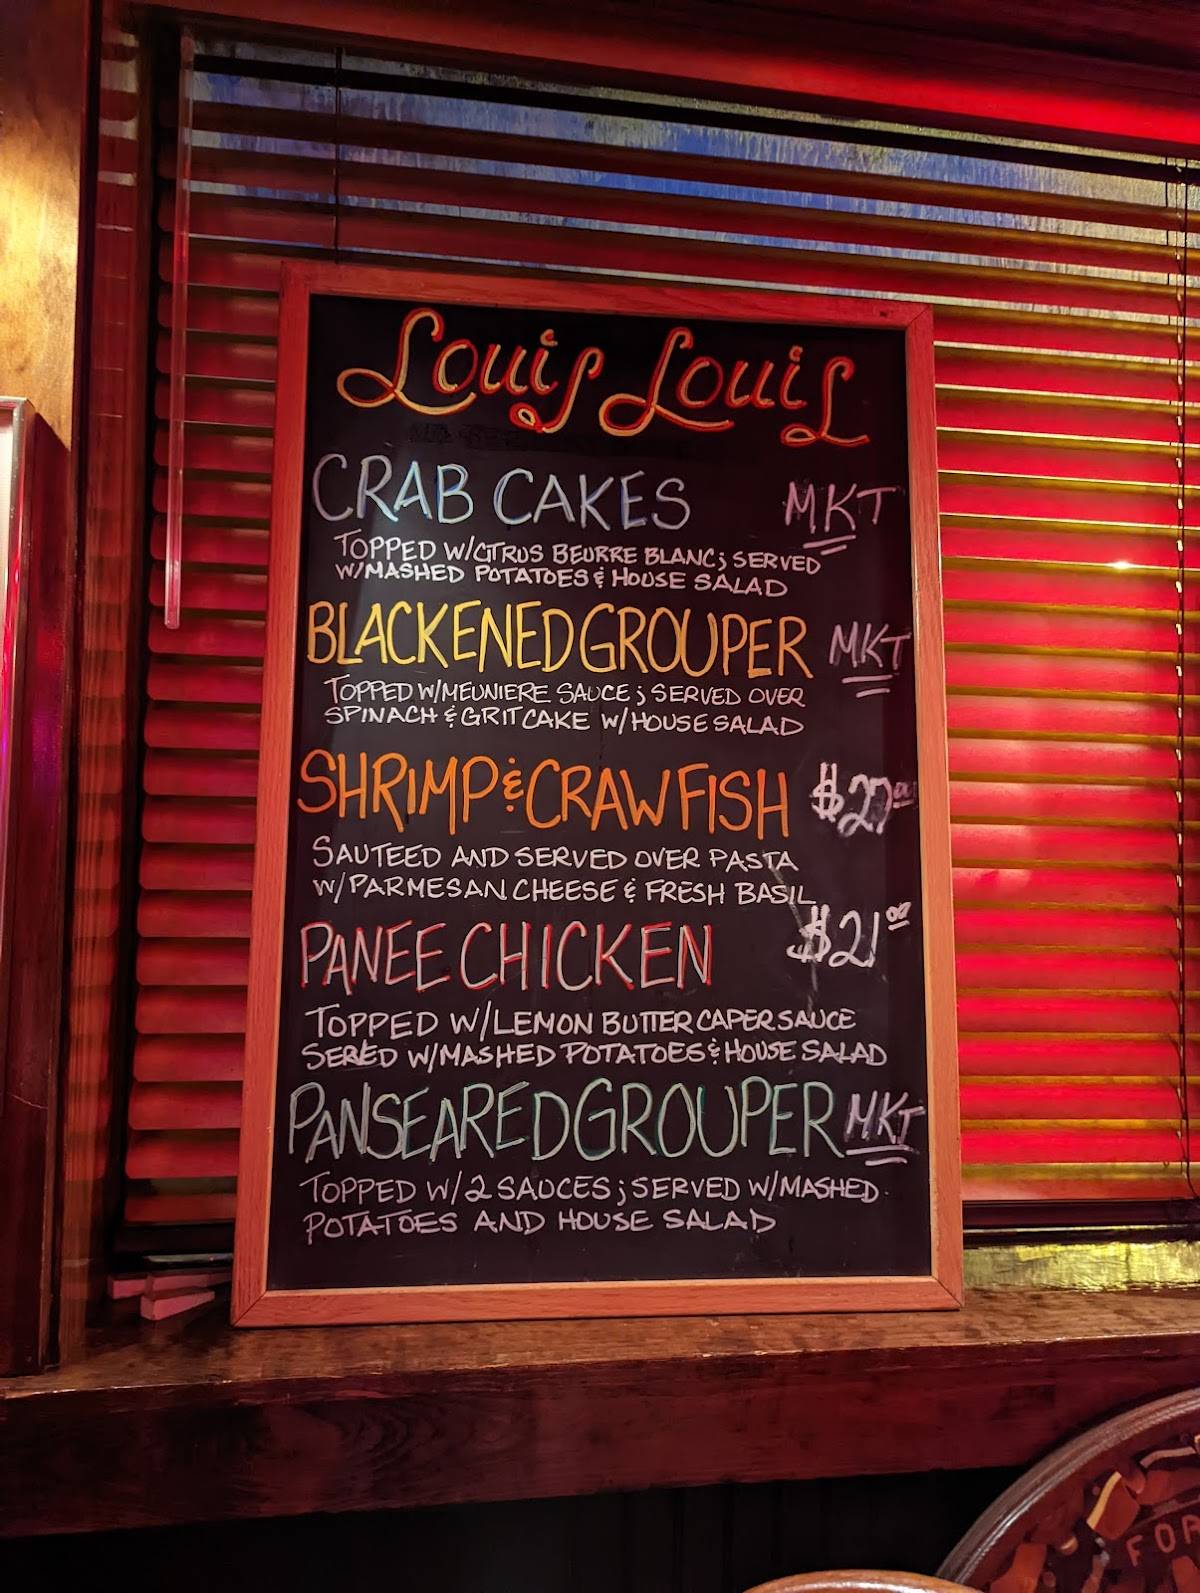 Louis Louis
CRAB CAKES MKT
TOPPED W/CITRUS BEURRE BLANC; SERVED
W/MASHED POTATOES & HOUSE SALAD
BLACKENED GROUPER MKT
TOPPED W/MEUNIERE SAUCE; SERVED OVER
SPINACH & GRIT CAKE W/HOUSE SALAD
SHRIMP & CRAWFISH $27.00
SAUTEED AND SERVED OVER PASTA
W/PARMESAN CHEESE & FRESH BASIL
PANEE CHICKEN $21.00
TOPPED W/LEMON BUTTER CAPER SAUCE
SERED W/MASHED POTATOES & HOUSE SALAD
PANSEARED GROUPER MKT
TOPPED W/2 SAUCES; SERVED W/MASHED
POTATOES AND HOUSE SALAD